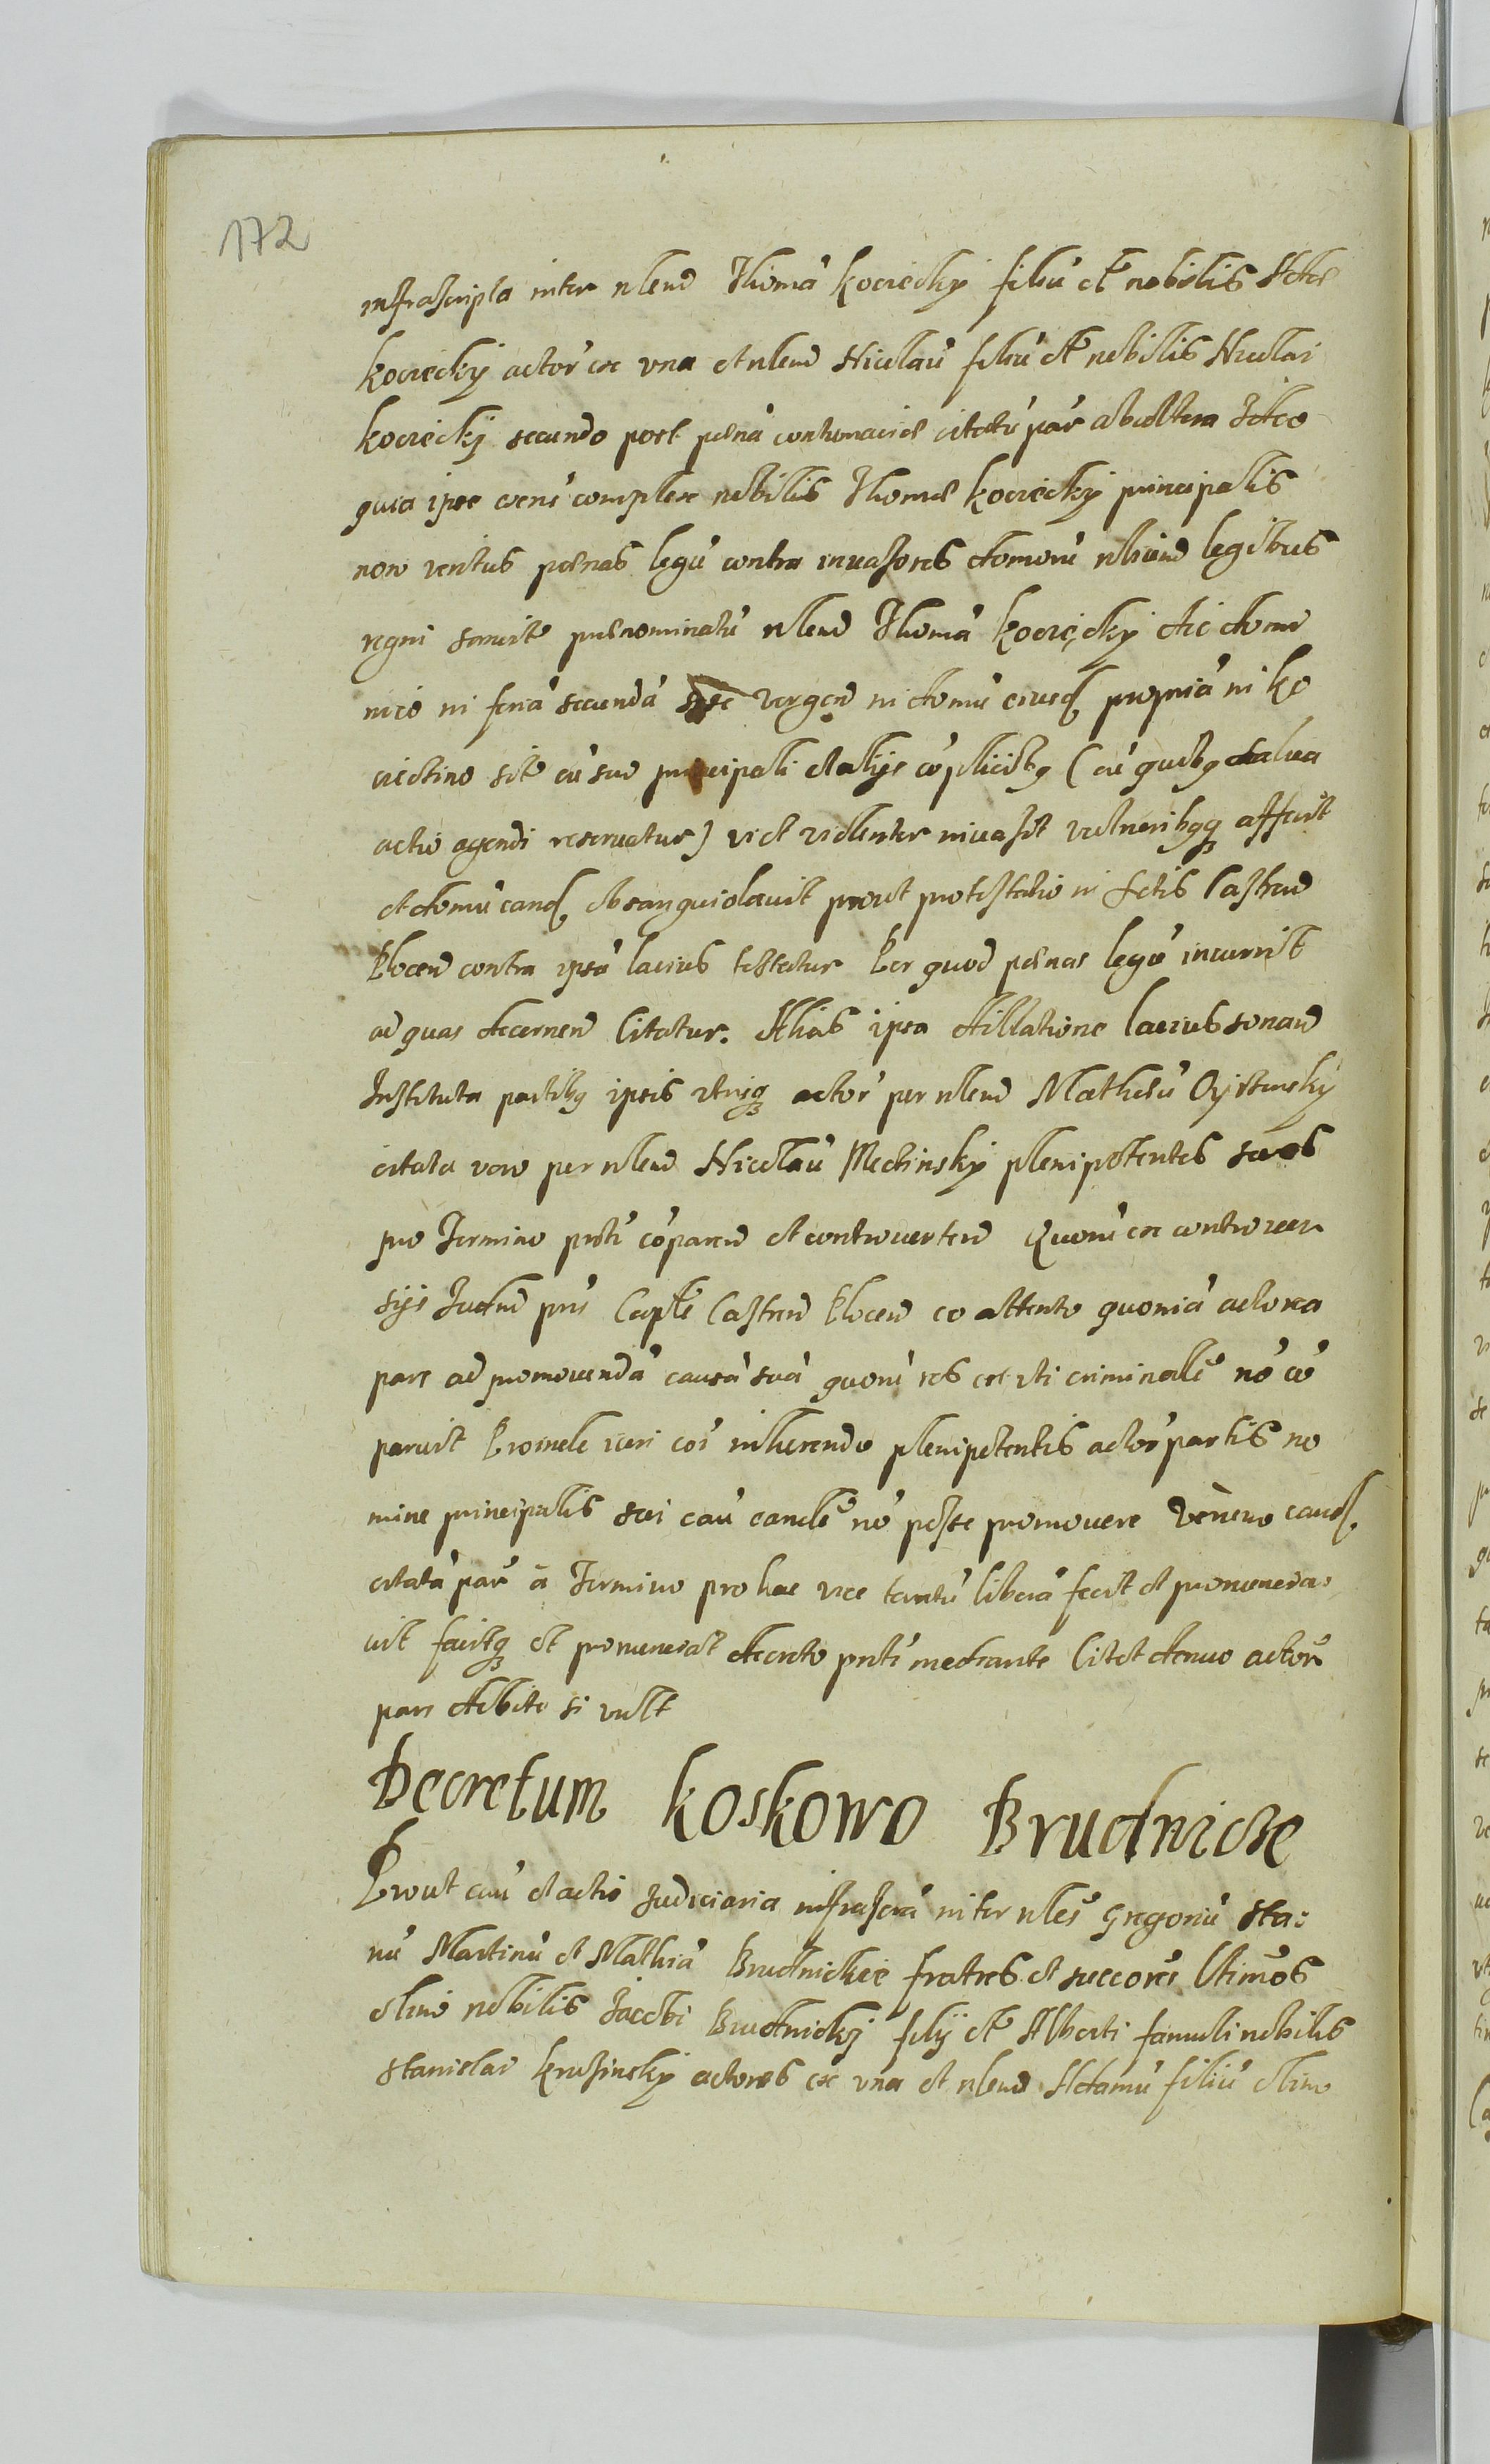 172
infrascripta inter nlem Thomā Kociecky filiū et nobilis
Kociecky actor' ex una et nlem Nicolaū filiū nobilis Nicolai
Kociecky secundo post pœnā contumaciæ citatū par' ab altera Ideo
quia ipse complex nobilis Thomæ Kociecky principalis
non veritus pœnas legū contra inuasores domorū nlium legibus
regni sancit prænominatū nlem Thomā Kociecky die domi
nico in feriā secundā in domū eiusd propriā in Ko
sit cū suo principali et alijs cōplicibq (cū quibq salua
actio agendi reseruatur) vi et violenter inuasit vulneribqq affecit
et domū eand obsanguiolauit prout protestatio in Actis Castren
Plocen contra ipsū lacius testatur Per quod pœnas legū incurrit
ad quas decernen Citatur. Alias ipsa Cittatione lacius sonan
Instituta partibq ipsis utrisqq actor' per nlem Matheū
citata vero per nlem Nicolaū Mechinsky plenipotentes suos
pro Termino pnti cōparen et controuerten Quorū ex controuer
sijs Iudm pns Capte Castren Plocen eo attento quoniā actorea
pars ad promouendā causā suā quoniā res est uti criminale nō cō
paruit Proinde iuri coi inherendo plenipotentis actor' partis no
mine principalis sui cau' eandē nō posse promouere eand
citatā par' a Termino pro hac vice tantū liberā fecit et pronuncia
uit facitqq et pronunciat decreto pnti mediante Citet denuo actor'
pars debite si vult
Decretum Koskowo Brudnicze
Prout cau' et actio Iudiciaria infrascrā inter nles Gregoriū Sta:
nū Martinū et Mathiā Brudnickie fratres et
olim nobilis Iacobi Brudnickj filij et Alberti famuli nobilis
Stanislai Krasinsky actores ex una et nlem Adamū filiū olim